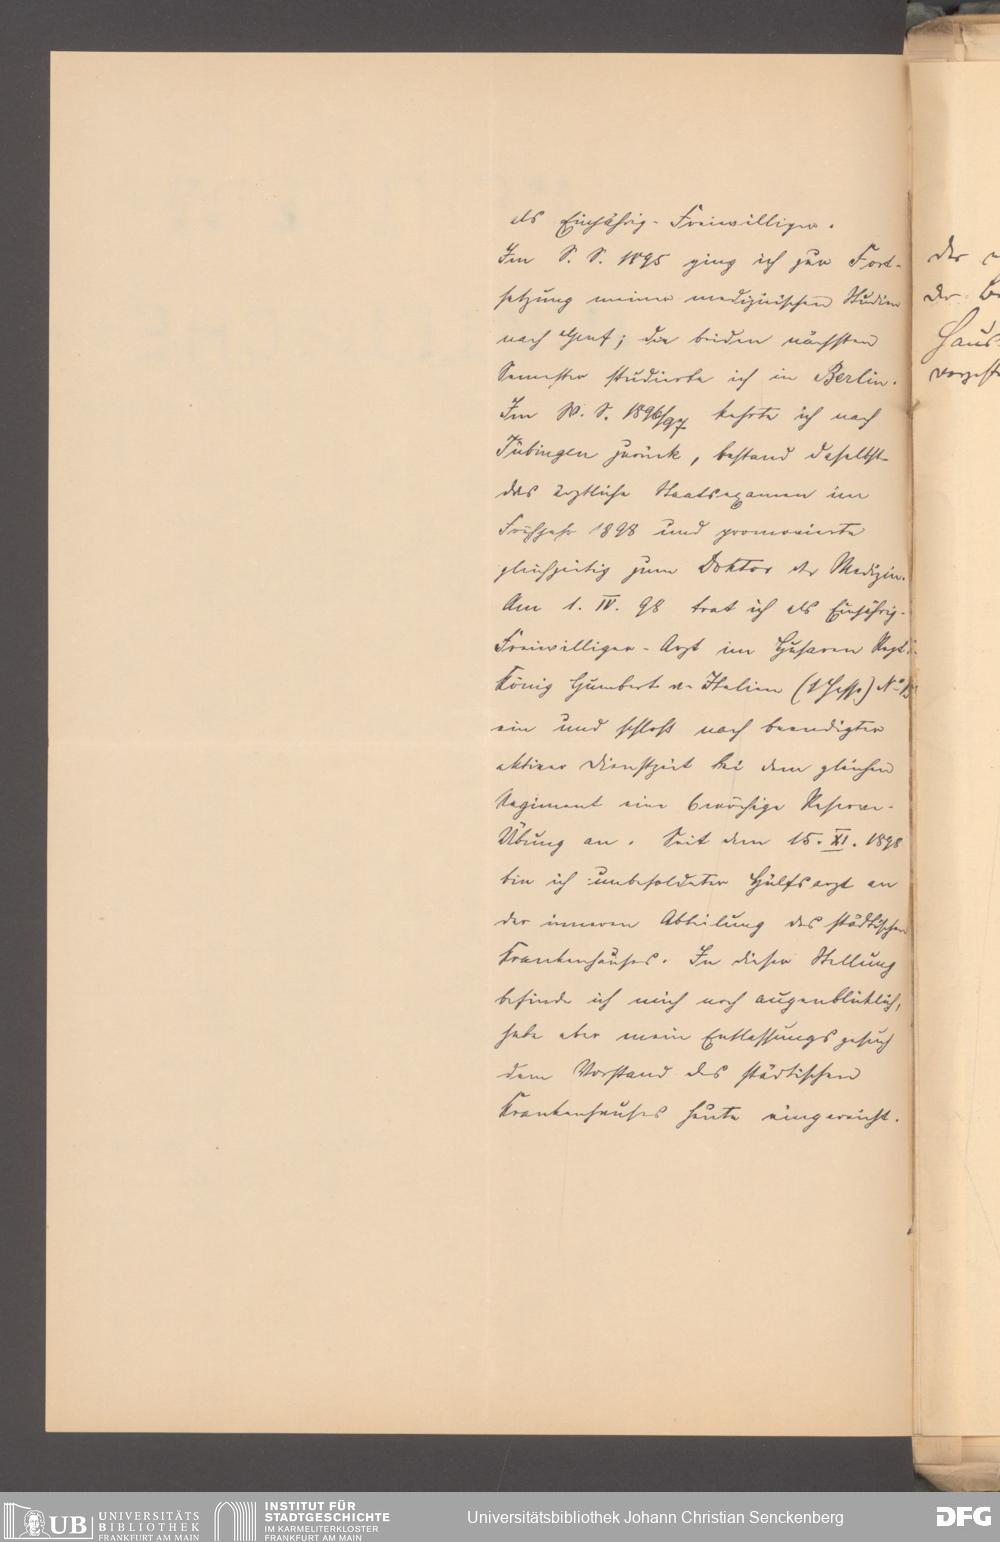 als Einjährig-Freiwilliger.
Im S. S. 1895 ging ich zur Fort-
setzung meiner medizinischen Studien
nach Genf; die beiden nächsten
Semester studierte ich in Berlin.
Im W. S. 1896/97 kehrte ich nach
Tübingen zurück, bestand daselbst
das ärztliche Staatsexamen im
Frühjahr 1898 und promovierte
gleichzeitig zum Doktor der Medizin.
Am 1. IV. 98 trat ich als Einjährig-
Freiwilliger-Arzt im Husaren Regt.
König Humbert v. Italien (1 Hess.) No 13
ein und schloß nach beendigter
aktiver Dienstzeit bei dem gleichen
Regiment eine 6 wöchige Reserve-
Übung an. Seit dem 15. XI. 1898
bin ich unbesoldeter Hülfsarzt an
der inneren Abteilung des städtischen
Krankenhauses. In dieser Stellung
befinde ich mich noch augenblicklich,
habe aber mein Entlassungsgesuch
dem Vorstand des städtischen
Krankenhauses heute eingereicht.
der
der
Haus-
UB UNIVERSITÄTS
BIBLIOTHEK
FRANKFURT AM MAIN
INSTITUT FÜR
STADTGESCHICHTE
IM KARMELITERKLOSTER
FRANKFURT AM MAIN
Universitätsbibliothek Johann Christian Senckenberg
DFG